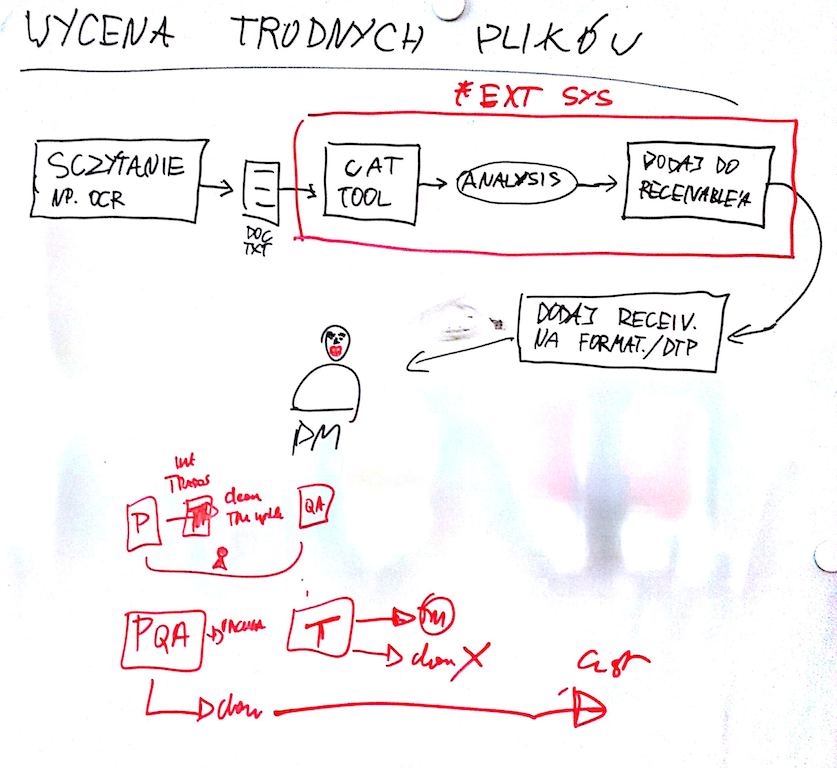 WYCENA TRUDNYCH PLIKÓW
*EXT SYS
SCZYTANIE
NP. OCR
DOC
TXT
CAT
TOOL
ANALYSIS
DODAJ DO
RECEIVABLE'A
DODAJ RECEIV.
NA FORMAT./DTP
PM
P
clean
QA
PQA
T
clean X
clean